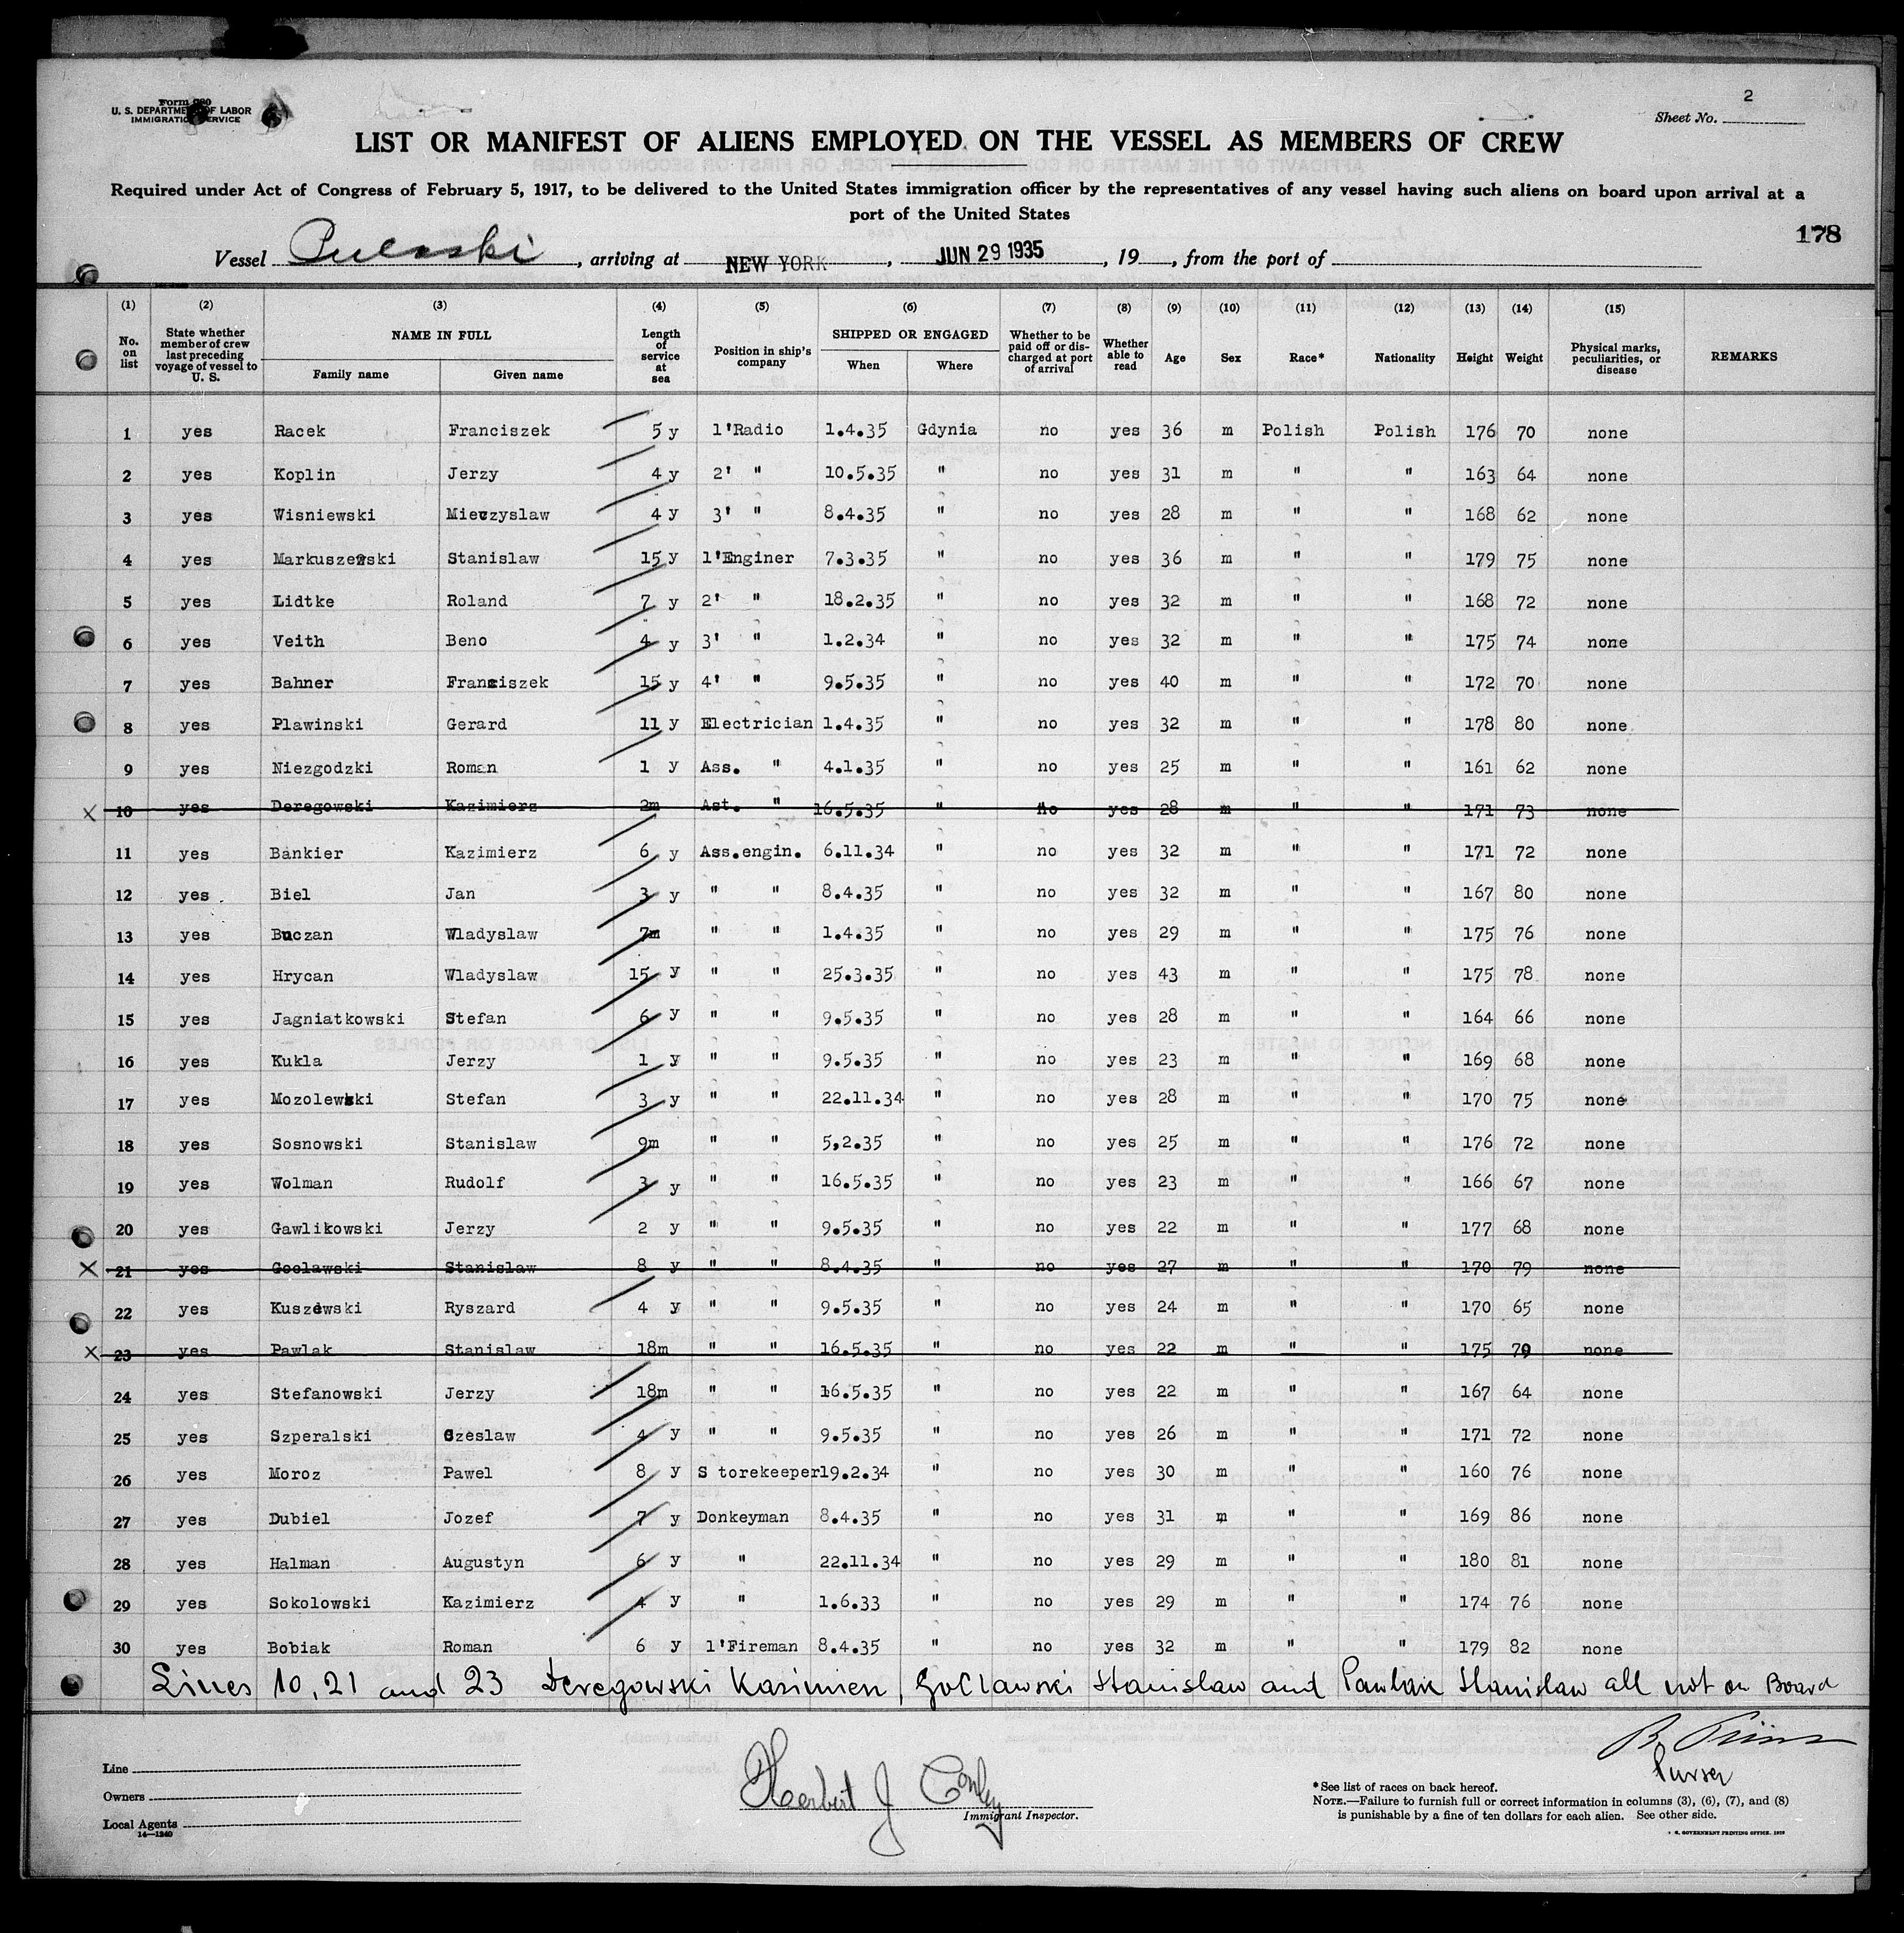 Form 680
U. S. DEPARTMENT OF LABOR
IMMIGRATION SERVICE
2
Sheet No.
LIST OR MANIFEST OF ALIENS EMPLOYED ON THE VESSEL AS MEMBERS OF CREW
Required under Act of Congress of February 5, 1917, to be delivered to the United States immigration officer by the representatives of any vessel having such aliens on board upon arrival at a
port of the United States
178
Vessel Pulaski, arriving at NEW YORK, JUN 29 1935, 19, from the port of
(1) (2) (3) (4) (5) (6) (7) (8) (9) (10) (11) (12) (13) (14) (15)
No. on list State whether member of crew last preceding voyage of vessel to U. S. NAME IN FULL Family name Given name Length of service at sea Position in ship's company SHIPPED OR ENGAGED When Where Whether to be paid off or discharged at port of arrival Whether able to read Age Sex Race* Nationality Height Weight Physical marks, peculiarities, or disease REMARKS
1 yes Racek Franciszek 5 y 1'Radio 1.4.35 Gdynia no yes 36 m Polish Polish 176 70 none
2 yes Koplin Jerzy 4 y 2' " 10.5.35 " no yes 31 m " " 163 64 none
3 yes Wisniewski Mieczyslaw 4 y 3' " 8.4.35 " no yes 28 m " " 168 62 none
4 yes Markuszewski Stanislaw 15 y 1'Enginer 7.3.35 " no yes 36 m " " 179 75 none
5 yes Lidtke Roland 7 y 2' " 18.2.35 " no yes 32 m " " 168 72 none
6 yes Veith Beno 4 y 3' " 1.2.34 " no yes 32 m " " 175 74 none
7 yes Bahner Franciszek 15 y 4' " 9.5.35 " no yes 40 m " " 172 70 none
8 yes Plawinski Gerard 11 y Electrician 1.4.35 " no yes 32 m " " 178 80 none
9 yes Niezgodzki Roman 1 y Ass. " 4.1.35 " no yes 25 m " " 161 62 none
X 10 yes Deregowski Kazimierz 2m Ast. " 16.5.35 " no yes 28 m " " 171 73 none
11 yes Bankier Kazimierz 6 y Ass.engin. 6.11.34 " no yes 32 m " " 171 72 none
12 yes Biel Jan 3 y " " 8.4.35 " no yes 32 m " " 167 80 none
13 yes Buczan Wladyslaw 7m " " 1.4.35 " no yes 29 m " " 175 76 none
14 yes Hrycan Wladyslaw 15 y " " 25.3.35 " no yes 43 m " " 175 78 none
15 yes Jagniatkowski Stefan 6 y " " 9.5.35 " no yes 28 m " " 164 66 none
16 yes Kukla Jerzy 1 y " " 9.5.35 " no yes 23 m " " 169 68 none
17 yes Mozolewski Stefan 3 y " " 22.11.34 " no yes 28 m " " 170 75 none
18 yes Sosnowski Stanislaw 9m " " 5,2.35 " no yes 25 m " " 176 72 none
19 yes Wolman Rudolf 3 y " " 16.5.35 " no yes 23 m " " 166 67 none
20 yes Gawlikowski Jerzy 2 y " " 9.5.35 " no yes 22 m " " 177 68 none
X 21 yes Goclawski Stanislaw 8 y " " 8.4.35 " no yes 27 m " " 170 79 none
22 yes Kuszewski Ryszard 4 y " " 9.5.35 " no yes 24 m " " 170 65 none
X 23 yes Pawlak Stanislaw 18m " " 16.5.35 " no yes 22 m " " 175 79 none
24 yes Stefanowski Jerzy 18m " " 16.5.35 " no yes 22 m " " 167 64 none
25 yes Szperalski Czeslaw 4 y " " 9.5.35 " no yes 26 m " " 171 72 none
26 yes Moroz Pawel 8 y S torekeeper 19.2.34 " no yes 30 m " " 160 76 none
27 yes Dubiel Jozef 7 y Donkeyman 8.4.35 " no yes 31 m " " 169 86 none
28 yes Halman Augustyn 6 y " 22.11.34 " no yes 29 m " " 180 81 none
29 yes Sokolowski Kazimierz 4 y " 1.6.33 " no yes 29 m " " 174 76 none
30 yes Bobiak Roman 6 y 1'Fireman 8.4.35 " no yes 32 m " " 179 82 none
Lines 10, 21 and 23 Deregowski Kasimierz, Goclawski Stanislaw and Pawlak Stanislaw all not on Board
Purser
Line
Owners
Local Agents
14—1240
Herbert J Conley
Immigrant Inspector.
*See list of races on back hereof.
NOTE.—Failure to furnish full or correct information in columns (3), (6), (7), and (8)
is punishable by a fine of ten dollars for each alien. See other side.
GOVERNMENT PRINTING OFFICE